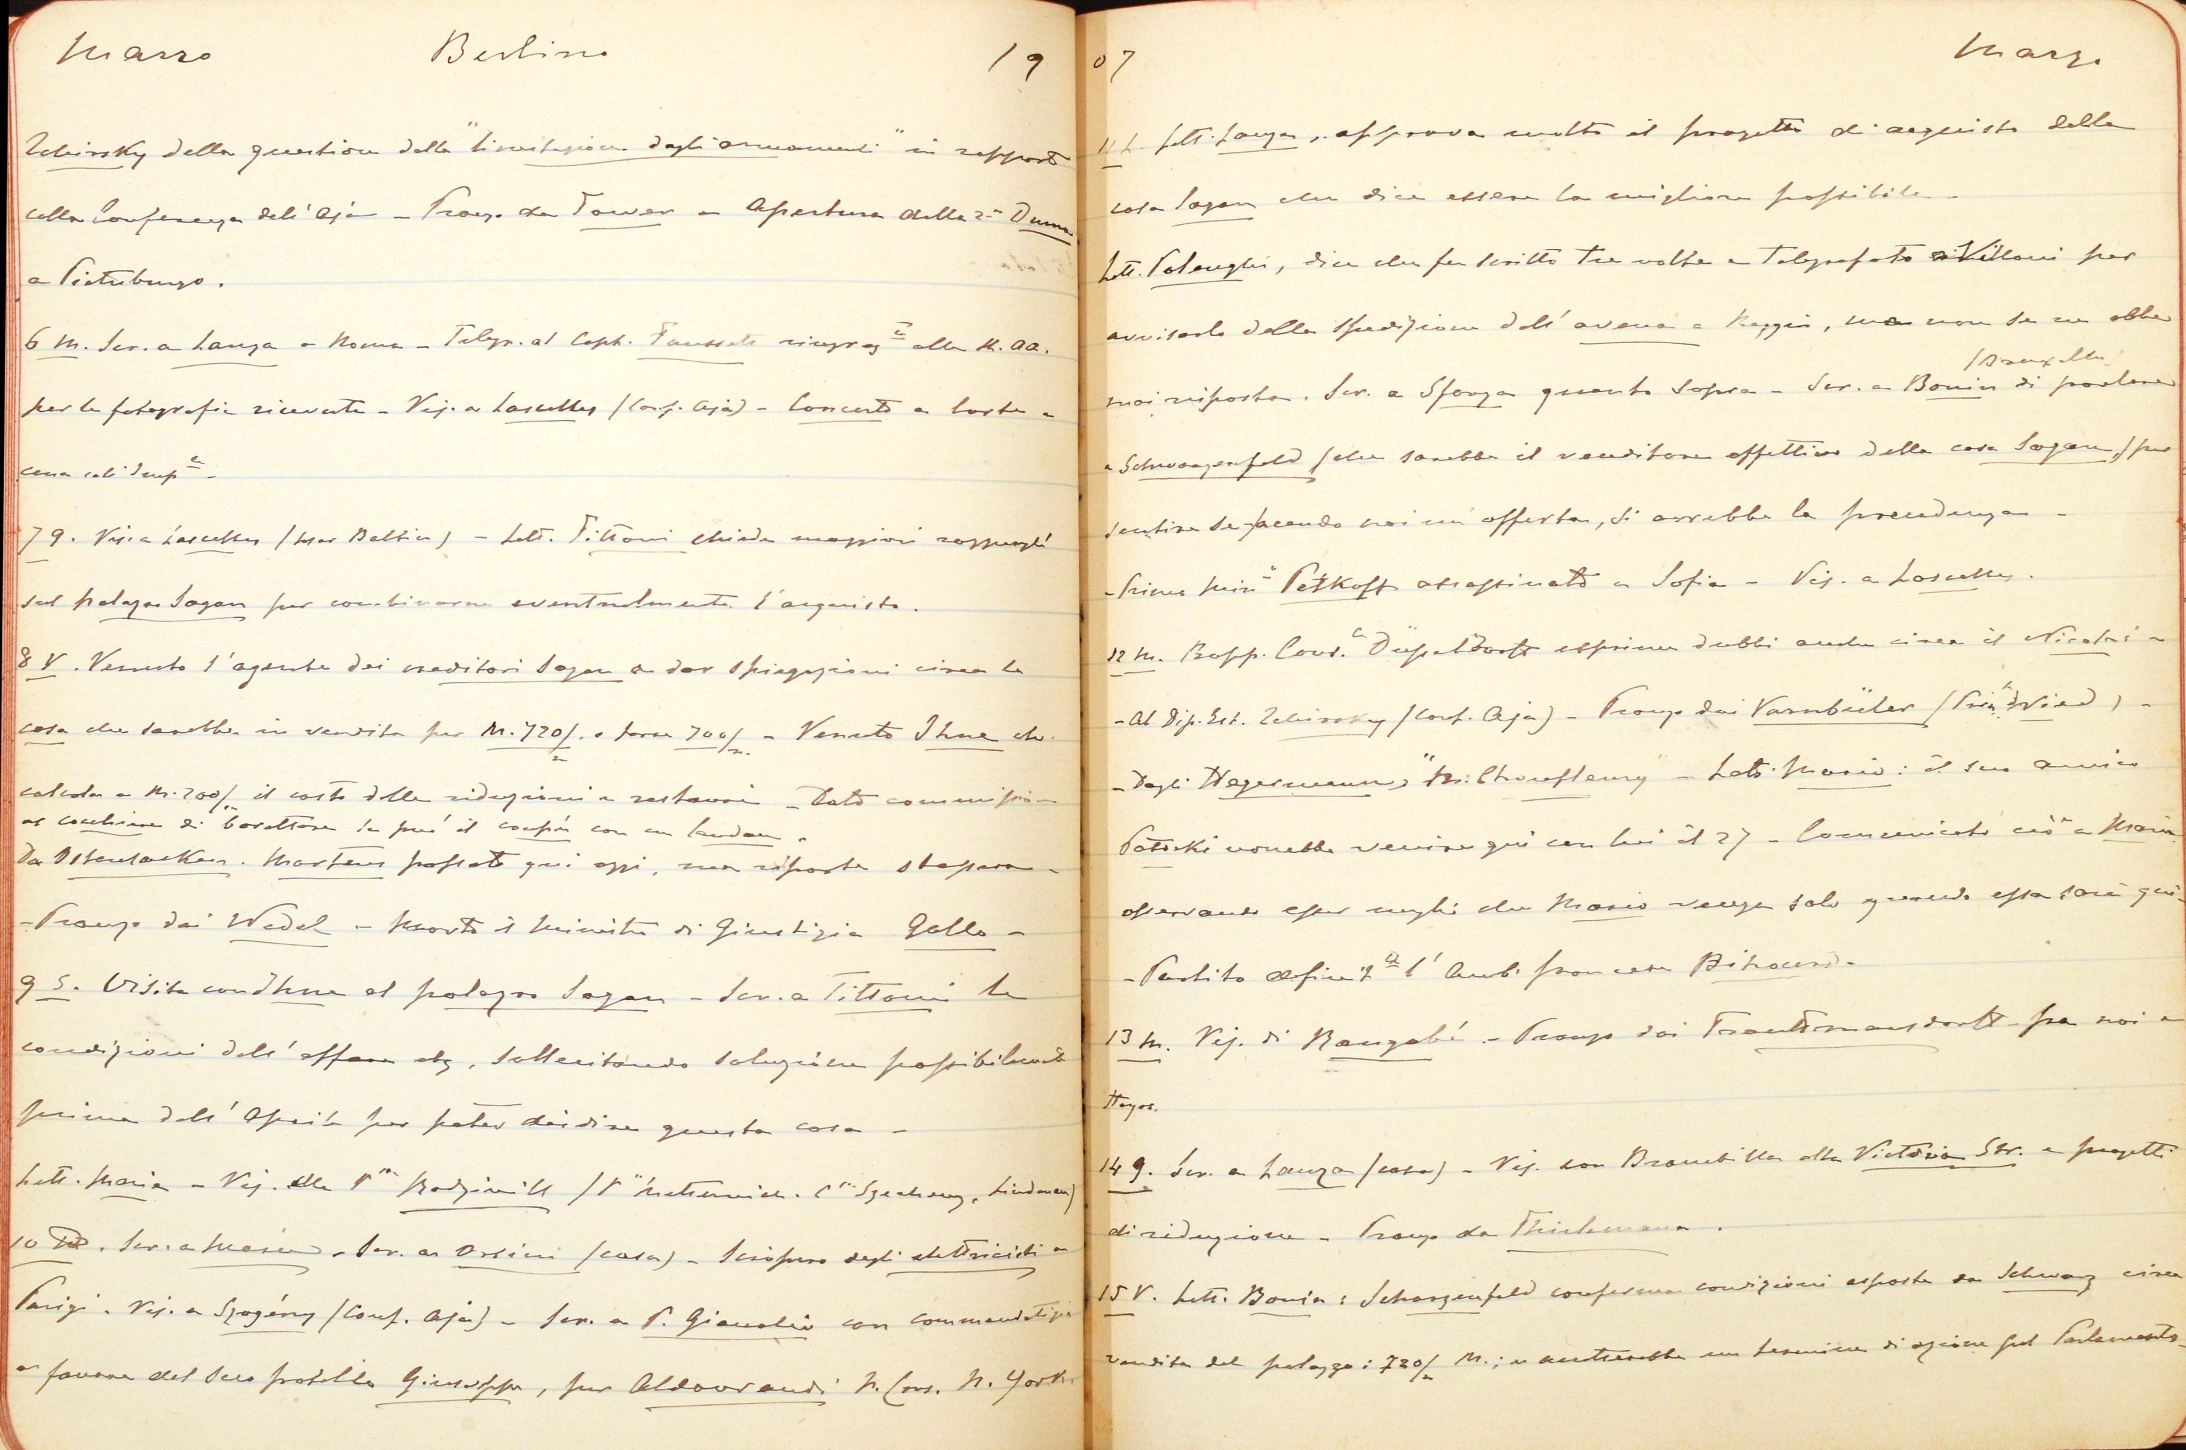 Marzo Berlino 19
Tchirsky della questione della "limitazione degli armamenti" in rapporto
colla Conferenza dell'Aja - Pranzo da Tower - Apertura della 2ª Duma
a Pietroburgo.
6 M. Scr. a Lanza a Roma - Telegr. al Caph. alle R. AA.
per le fotografie ricevute - Vis. a Lascelles (Conf. Aja) - Concerto a Corte e
cena coll'Imp.re -
7 G. Vis. a Lascelles (Mar Baltico) - Lett. Tittoni chiede maggiori ragguagli
sul palazzo Sagan per combinarne eventualmente l'acquisto.
8 V. Venuto l'agente dei creditori Sagan a dar spiegazioni circa la
casa che sarebbe in vendita per M. 720/m o forse 700/m - Venuto Ihne che
calcola a M. 200/m il costo delle riduzioni e restauri - Dato commissione
al cocchiere di barattare se può il coupé con un landau.
Da Ostensacken. Martens passato qui oggi, ma riparte stasera -
- Pranzo dai Wedel - Morto il Ministro di Giustizia Gallo -
9 S. Visita con Ihne al palazzo Sagan - Scr. a Tittoni le
condizioni dell'affare etc, sollecitando soluzione possibilmente
prima dell'Aprile per poter disdire questa casa -
Lett. Maria - Vis. alla P.ssa Radziwill (P.ssa Metternich. C.ssa Szecheny, Lindeman)
10 D. Scr. a Mario - Scr. a Orsini (casa) - Sciopero degli elettricisti a
Parigi. Vis. a Szogény (Conf. Aja) - Scr. a P. Gianolio con commendatizia
a favore del suo fratello Giuseppe, per Aldovrandi R. Cons. N. York.
07 Marzo
11 L. Lett. Lanza, approva molto il progetto di acquisto della
casa Sagan che dice essere la migliore possibile -
Lett. Polenghi, dice che fu scritto tre volte e telegrafato a Villani per
avvisarlo della spedizione dell'avena a Reggio, ma non se ne ebbe
(Bruxelles)
mai risposta. Scr. a Sforza quanto sopra - Scr. a Bonin di parlare
a Schwarzenfeld (che sarebbe il venditore effettivo della casa Sagan) per
sentire se facendo noi un'offerta, si avrebbe la precedenza -
- Primo Min.o Petkoff assassinato a Sofia - Vis. a Lascelles.
12 M. Rapp. Cons. Düsseldorf esprime dubbi anche circa il Nicolai -
- Al Dip. Est. Tchirsky (Conf. Aja) - Pranzo dai Varnbüler (Prin. Wied) -
- Dagli Hegermann, "M. Choufleury" - Lett. Mario: il suo amico
Potocki vorrebbe venire qui con lui il 27 - Comunicato ciò a Maria
osservando esser meglio che Mario venga solo quando essa sarà qui -
- Partito definit.te l'Amb. francese Bihourd -
13 M. Vis. di Rangabé - Pranzo dai Trauttmansdorff fra noi e
Hoyos.
14 G. Scr. a Lanza (casa) - Vis. con Brambilla alla Victoria Str. e progetti
di riduzione - Pranzo da Thielmann.
15 V. Lett. Bonin: Schwarzenfeld conferma condizioni esposte da Schwarz circa
vendita del palazzo: 720/m M.; e metterebbe un termine di opzione pel Parlamento -